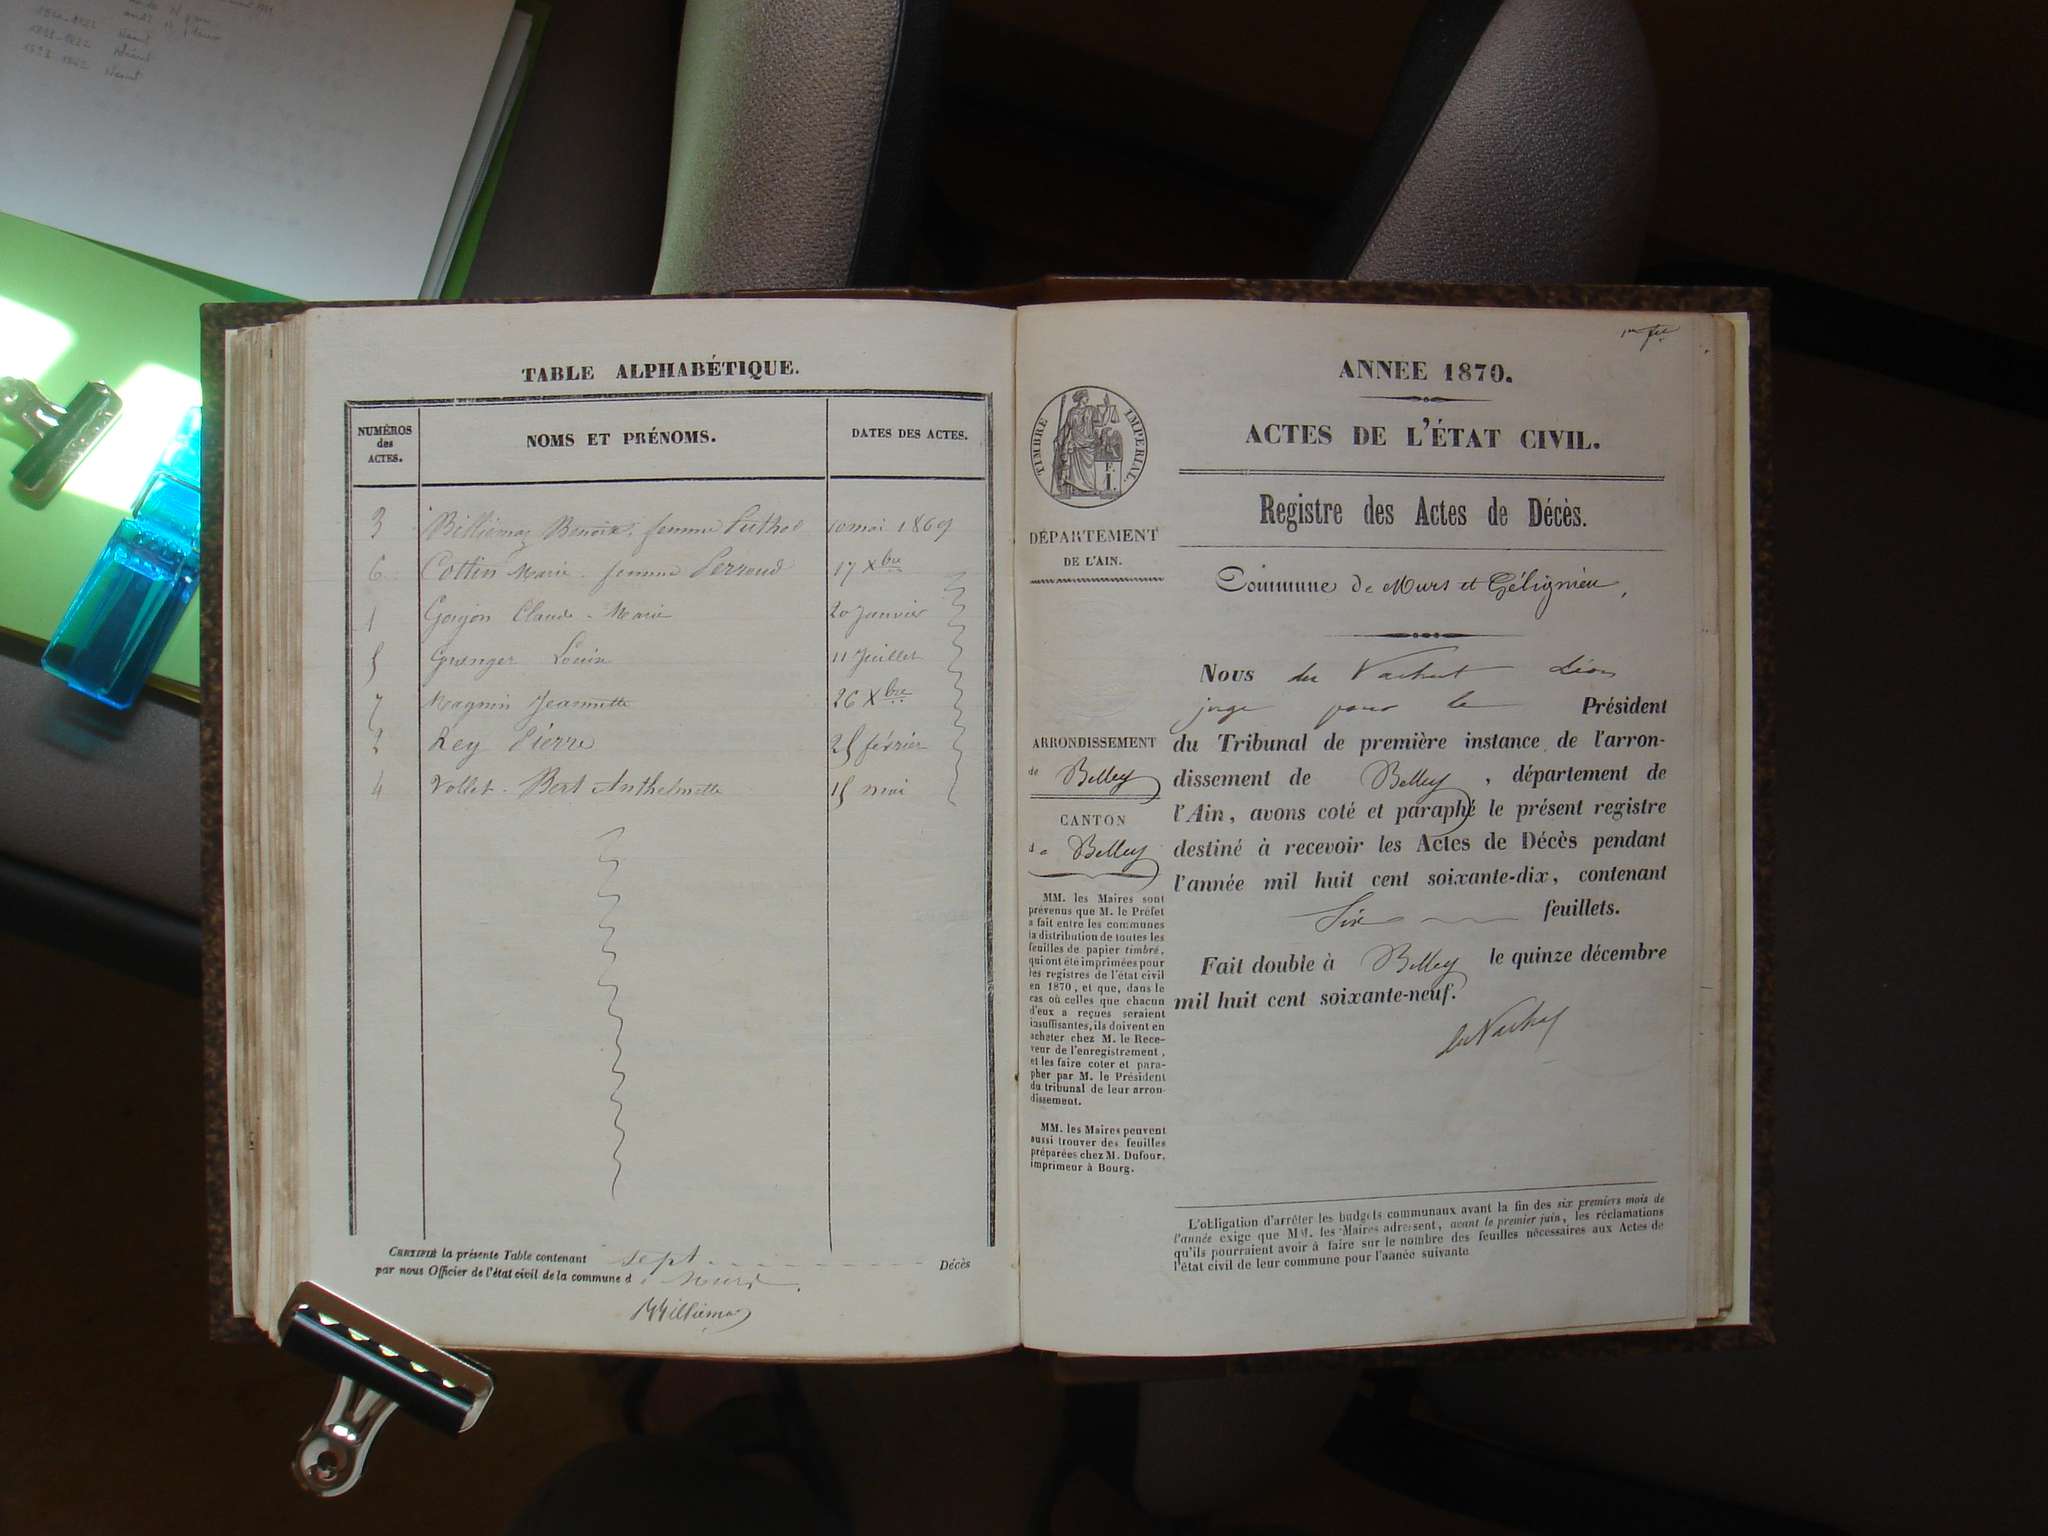 1823-1842 Néant
TABLE ALPHABÉTIQUE.
NUMÉROS
des
ACTES.
NOMS ET PRÉNOMS.
DATES DES ACTES.
3 Billiémaz Benoite femme 10 mai 1869
6 Cottin Marie femme Perroud 17 Xbre
1 Goujon Claude-Marie 20 Janvier
5 Louise 11 Juillet
7 Magnin Jeannette 26 Xbre
2 Rey Pierre 25 février
4 Vollet-Bert Anthelmette 15 mai
CERTIFIÉ la présente Table contenant sept Décès
par nous Officier de l'état civil de la commune d Murs
Billiémaz
TIMBRE IMPÉRIAL
DÉPARTEMENT
DE L'AIN.
ARRONDISSEMENT
de Belley
CANTON
de Belley
MM. les Maires sont
prévenus que M. le Préfet
a fait entre les communes
la distribution de toutes les
feuilles de papier timbré,
qui ont été imprimées pour
les registres de l'état civil
en 1870, et que, dans le
cas où celles que chacun
d'eux a reçues seraient
insuffisantes, ils doivent en
acheter chez M. le Rece-
veur de l'enregistrement,
et les faire coter et para-
pher par M. le Président
du tribunal de leur arron-
dissement.
MM. les Maires peuvent
aussi trouver des feuilles
préparées chez M. Dufour,
imprimeur à Bourg.
ANNÉE 1870.
ACTES DE L'ÉTAT CIVIL.
Registre des Actes de Décès.
Commune de Murs et Gélignieu,
Nous du Vachat Léon
juge pour le Président
du Tribunal de première instance de l'arron-
dissement de Belley, département de
l'Ain, avons coté et paraphé le présent registre
destiné à recevoir les Actes de Décès pendant
l'année mil huit cent soixante-dix, contenant
Six feuillets.
Fait double à Belley le quinze décembre
mil huit cent soixante-neuf.
du Vachat
L'obligation d'arrêter les budgets communaux avant la fin des six premiers mois de
l'année exige que MM. les Maires adressent, avant le premier juin, les réclamations
qu'ils pourraient avoir à faire sur le nombre des feuilles nécessaires aux Actes de
l'état civil de leur commune pour l'année suivante